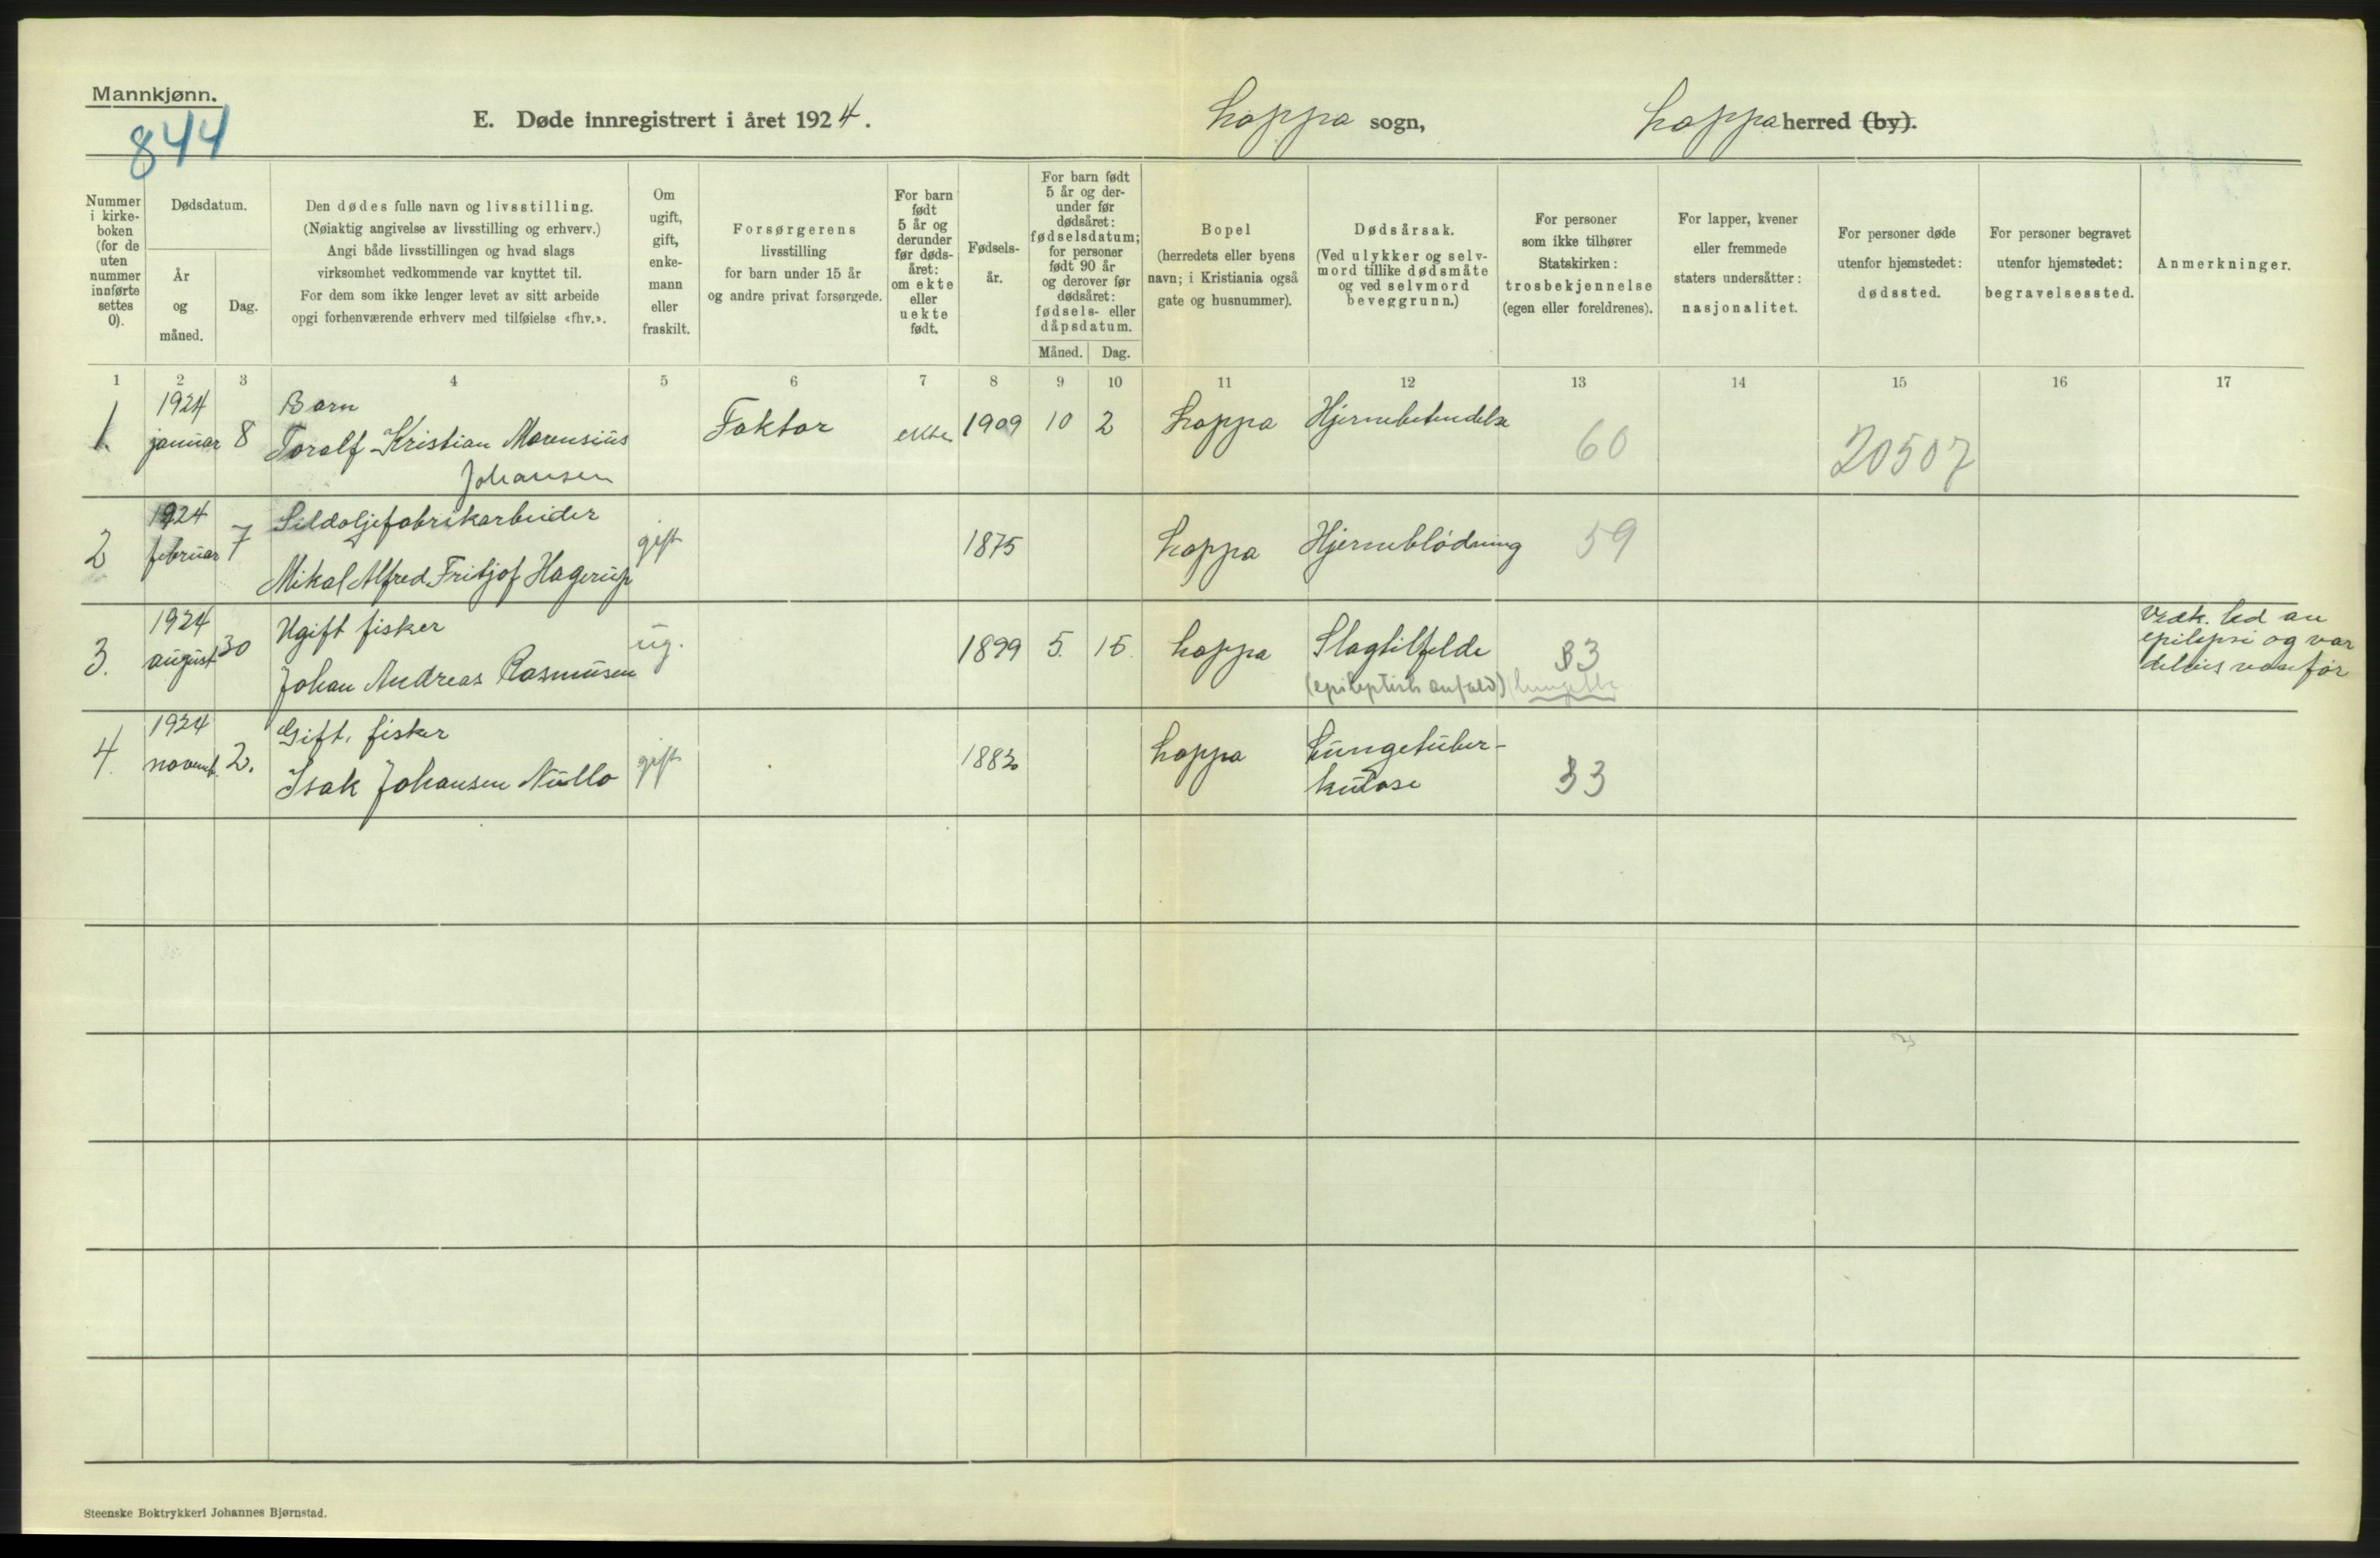 Mannkjønn.
844
E. Døde innregistrert i året 1924.
Loppa sogn,
Loppa herred (by).
Nummer i kirke-boken (for de uten nummer innførte settes 0).
Dødsdatum.
År og måned.
Dag.
Den dødes fulle navn og livsstilling.
(Nøiaktig angivelse av livsstilling og erhverv.)
Angi både livsstillingen og hvad slags
virksomhet vedkommende var knyttet til.
For dem som ikke lenger levet av sitt arbeide
opgi forhenværende erhverv med tilføielse «fhv.».
Om ugift, gift, enke-mann eller fraskilt.
Forsørgerens
livsstilling
for barn under 15 år
og andre privat forsørgede.
For barn født 5 år og derunder før døds-året: om ekte eller uekte født.
Fødsels-år.
For barn født 5 år og der-under før dødsåret: fødselsdatum; for personer født 90 år og derover før dødsåret: fødsels- eller dåpsdatum.
Måned.
Dag.
Bopel
(herredets eller byens
navn; i Kristiania også
gate og husnummer).
Dødsårsak.
(Ved ulykker og selv-
mord tillike dødsmåte
og ved selvmord
beveggrunn.)
For personer
som ikke tilhører
Statskirken:
trosbekjennelse
(egen eller foreldrenes).
For lapper, kvener
eller fremmede
staters undersåtter:
nasjonalitet.
For personer døde
utenfor hjemstedet:
dødssted.
For personer begravet
utenfor hjemstedet:
begravelsessted.
Anmerkninger.
1 2 3 4 5 6 7 8 9 10 11 12 13 14 15 16 17
1924 Barn
1. januar 8 Toralf Kristian Marensius Faktor ekte 1909 10 2 Loppa Hjernebetendelse 60 20507
Johansen
1924 Sildoljefabrikarbeider
2 februar 7 gift 1875 Loppa Hjerneblødning 59
Mikal Alfred Fritjof Hagerup
1924 Ugift fisker
3. august 30 ug. 1899 5. 15. Loppa Slagtilfelde 33
Johan Andreas Rasmussen (epileptisk anfald)
Vedk. led av
epilepsi og var
delvis vanfør
1924 Gift. fisker
4. novemb. 2. gift 1883 Loppa Lungetuber-
Isak Johansen Nullo kulose 33
Steenske Boktrykkeri Johannes Bjørnstad.